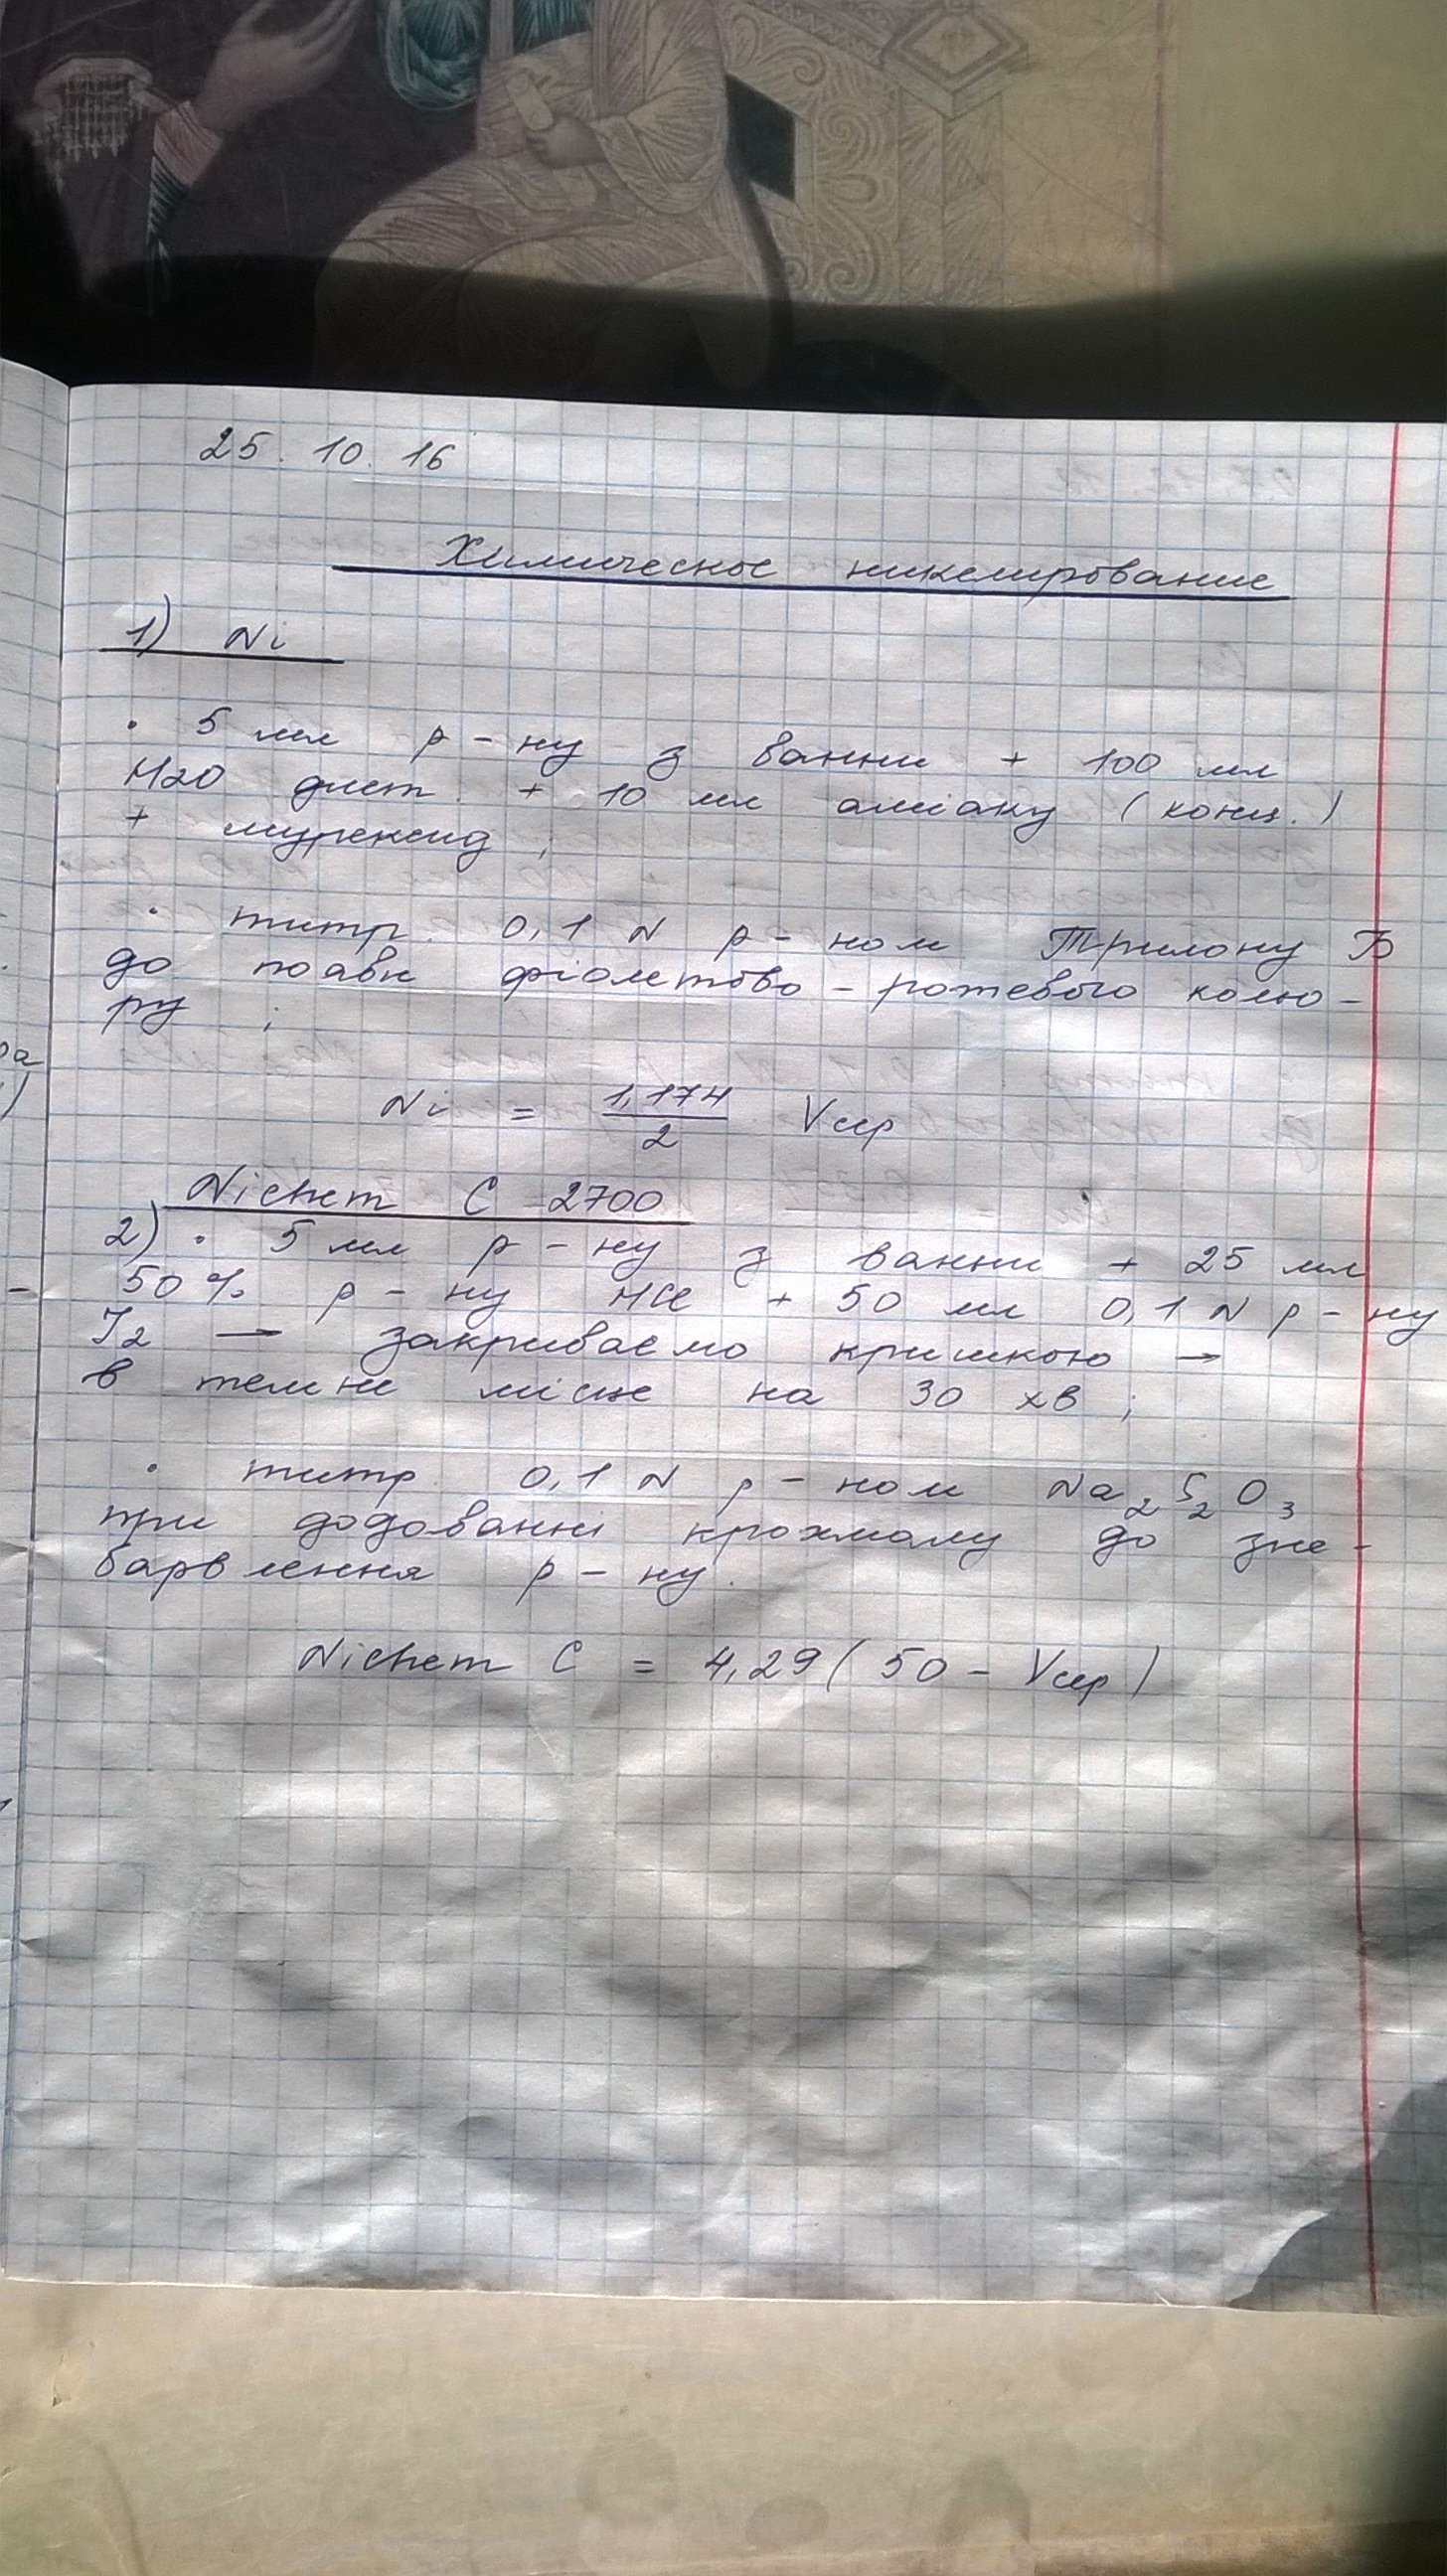 25.10.16
Химическое никелирование
1) Ni
• 5 мл р-ну з ванни + 100 мл
H2O дист. + 10 мл аміаку (конц.)
+ мурексид;
• титр. 0,1 N р-ном Трилону Б
до появи фіолетово-рожевого кольо-
ру;
Ni = 1,174/2 Vср
Nichem C 2700
2) • 5 мл р-ну з ванни + 25 мл
50% р-ну HCl + 50 мл 0,1 N р-ну
J2 → закриваємо кришкою →
в темне місце на 30 хв;
• титр. 0,1 N р-ном Na2S2O3
при додованні крохмалу до зне-
барвлення р-ну.
Nichem C = 4,29(50 - Vср)